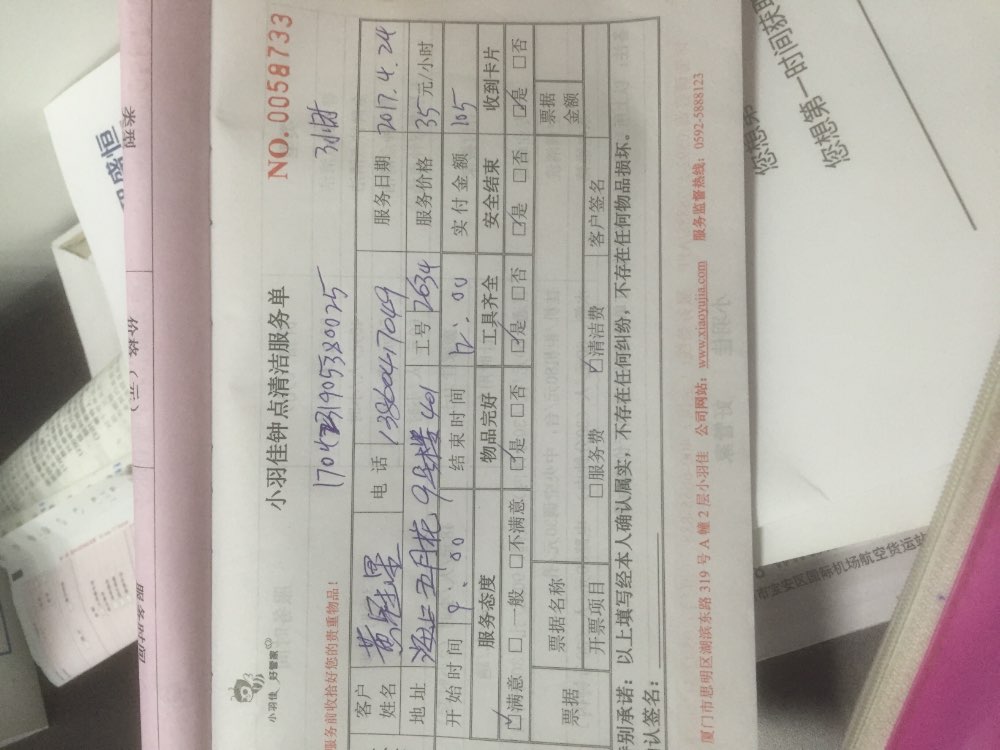 小羽佳 好管家
小羽佳钟点清洁服务单
NO.0058733
服务前收拾好您的贵重物品!
3小时
客户姓名 电话 13860447049 服务日期 2017.4.24
地址 海上五月花9号楼401 工号 2634 服务价格 35元/小时
开始时间 9:00 结束时间 12:00 实付金额 105
服务态度 物品完好 工具齐全 安全结束 收到卡片
☑满意 □一般 □不满意 ☑是 □否 ☑是 □否 ☑是 □否 ☑是 □否
票据 票据名称 票据金额
开票项目 □服务费 ☑清洁费 客户签名
别承诺:以上填写经本人确认属实,不存在任何纠纷,不存在任何物品损坏。
认签名:
厦门市思明区湖滨东路319号A幢2层小羽佳 公司网站:www.xiaoyujia.com 服务监督热线:0592-5888123
您想第
您想第一时间获
市宝安区国际机场航空货运站